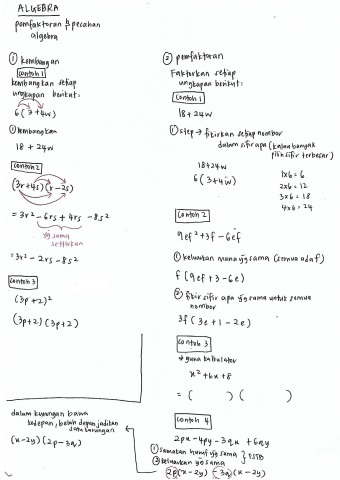 ALGEBRA
pemfaktoran & pecahan
algebra
① kembangan
contoh 1
kembangkan setiap
ungkapan berikut:
6 (3+4w)
① kembangkan
18 + 24w
contoh 2
(3r+4s)(r-2s)
= 3r² - 6rs + 4rs - 8s²
yg sama
settlekan
= 3r² - 2rs - 8s²
contoh 3
(3p+2)²
(3p+2)(3p+2)
② pemfaktoran
Faktorkan setiap
ungkapan berikut:
contoh 1
18 + 24w
① step → fikirkan setiap nombor
dalam sifir apa (kalau banyak
pilih sifir terbesar)
18+24w
6(3+4w)
1x6 = 6
2x6 = 12
3x6 = 18
4x6 = 24
contoh 2
9ef² + 3f - 6ef
① keluarkan mana yg sama (semua ada f)
f(9ef + 3 - 6e)
② fikir sifir apa yg sama untuk semua
nombor
3f(3e + 1 - 2e)
contoh 3
→ guna kalkulator
x² + 6x + 8
= ( ) ( )
contoh 4
2px - 4py - 3qx + 6qy
① samakan huruf yg sama
② keluarkan yg sama
2p(x-2y) - 3q(x-2y)
dalam kurungan bawa
kedepan, belah depan jadikan
satu kurungan
(x-2y)(2p-3q)